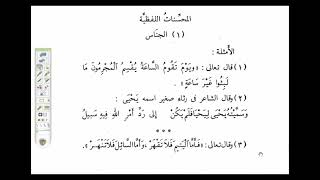 المحسّنات اللفظيّة
(١) الجناس
الأمثلة :
(١) قال تعالى : «ويَوْمَ تَقُومُ السَّاعَةُ يُقْسِمُ المُجْرِمُونَ مَا
لَبِثُوا غَيْرَ سَاعَةٍ» .
(٢) وقال الشاعر في رثاء صغير اسمه يَحْيَى :
وَسَمَّيْتُهُ يَحْيَى لِيَحْيَا فَلَمْ يَكُنْ إِلَى رَدِّ أَمْرِ اللَّهِ فِيهِ سَبِيلُ
* * *
(٣) وقال تعالى : «فَأَمَّا الْيَتِيمَ فَلَا تَقْهَرْ ، وَأَمَّا السَّائِلَ فَلَا تَنْهَرْ» .